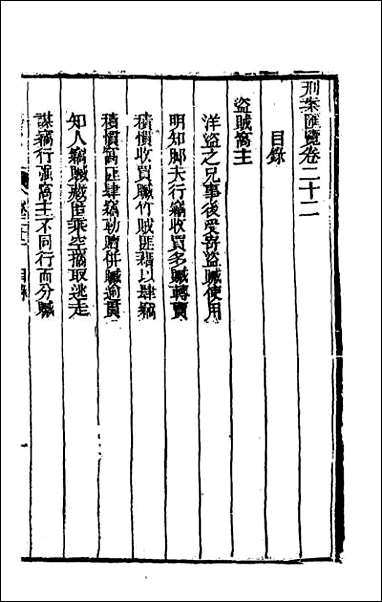 刑案匯覽卷二十二
目錄
盜賊窩主
洋盜之兄事後受寄盜贓使用
明知腳夫行竊收買多贓轉賣
積慣收買贓竹賊匪藉以肆竊
積慣窩匪肆竊勒贖併贓逾貫
知人竊贓藏匿乘空搶取逃走
謀竊行强窩主不同行而分贓
目錄